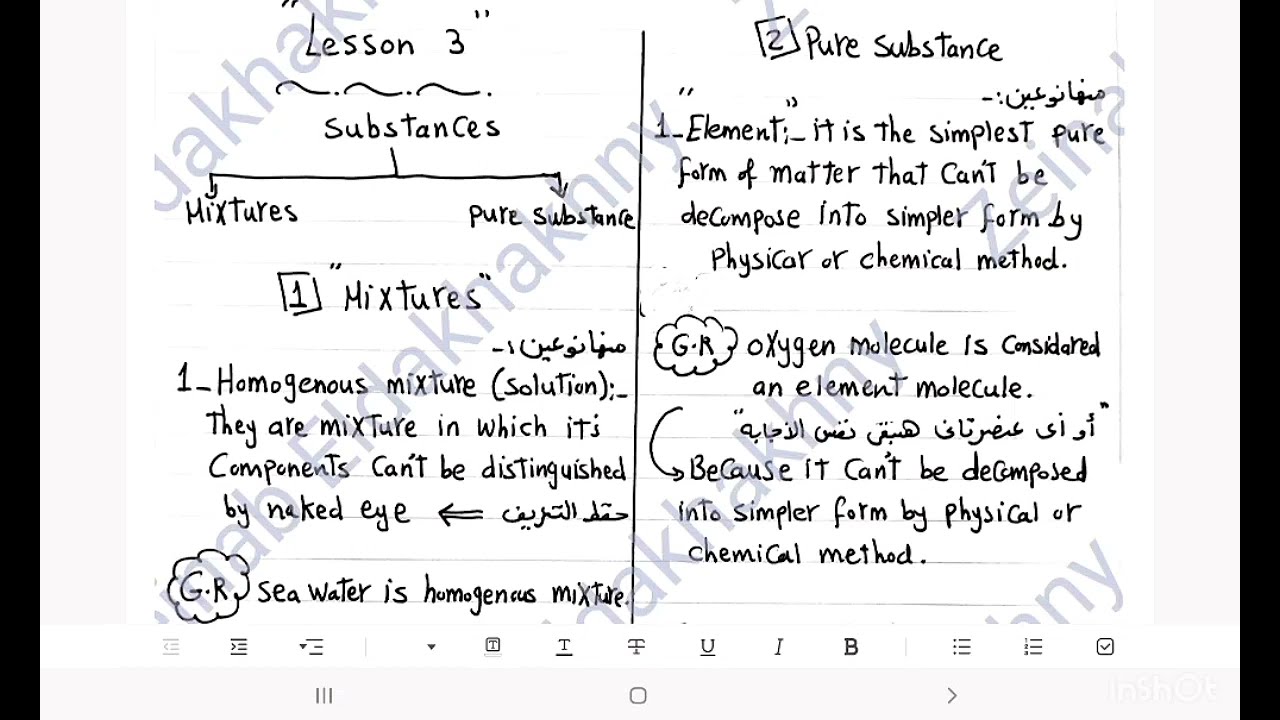 "Lesson 3"
Substances
Mixtures
pure substance
1 "Mixtures"
منها نوعين :-
1- Homogenous mixture (solution):-
They are mixture in which it's
components can't be distinguished
by naked eye ⇐ حفظ التعريف
G.R sea water is homogenous mixture.
2 Pure substance
منها نوعين :-
1- "Element":- it is the simplest pure
form of matter that can't be
decompose into simpler form by
physical or chemical method.
G.R oxygen molecule is considared
an element molecule.
"أو أى عنصر تانى هتبقى نفس الاجابة"
Because it can't be decomposed
into simpler form by physical or
chemical method.
Zeinab Eldakhakhny
InShOt